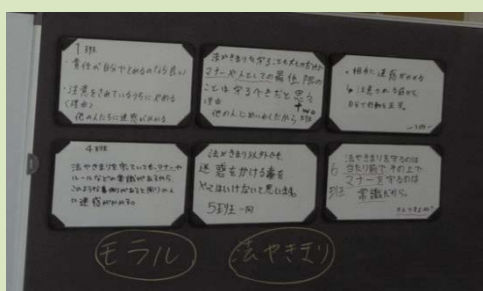 1班
・責任が自分でとれるのなら良い
・注意をされているうちにやめる
(理由)
他の人たちに迷惑がかかる
法やきまりを守ることも大切だけど
マナーや人としての最低限の
ことは守るべきだと思う
理由
他の人にめいわくだから
・相手に迷惑がかかる
注意される前に
自分で
4班
法やきまりを守っていても、マナーや
ルールなどの常識があるから、
このような事例があると周りの人
に迷惑がかかる。
法やきまり以外でも
迷惑をかける事を
やってはいけないと思います。
5班一同
6班
法やきまりを守るのは
当たり前でその上で
マナーを守るのは
常識だから。
モラル
法やきまり